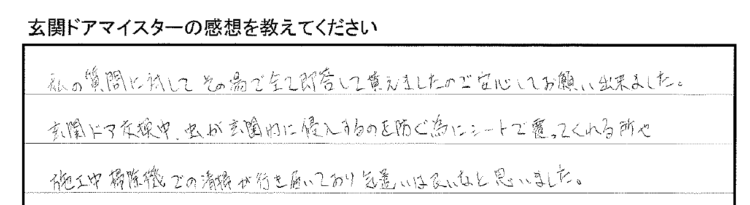 玄関ドアマイスターの感想を教えてください
私の質問に対して その場で全て即答して貰えましたので安心してお願い出来ました。
玄関ドア交換中、虫が玄関内に侵入するのを防ぐ為にシートで覆ってくれる所や
施工中掃除機での清掃が行き届いており気遣いは良いなと思いました。